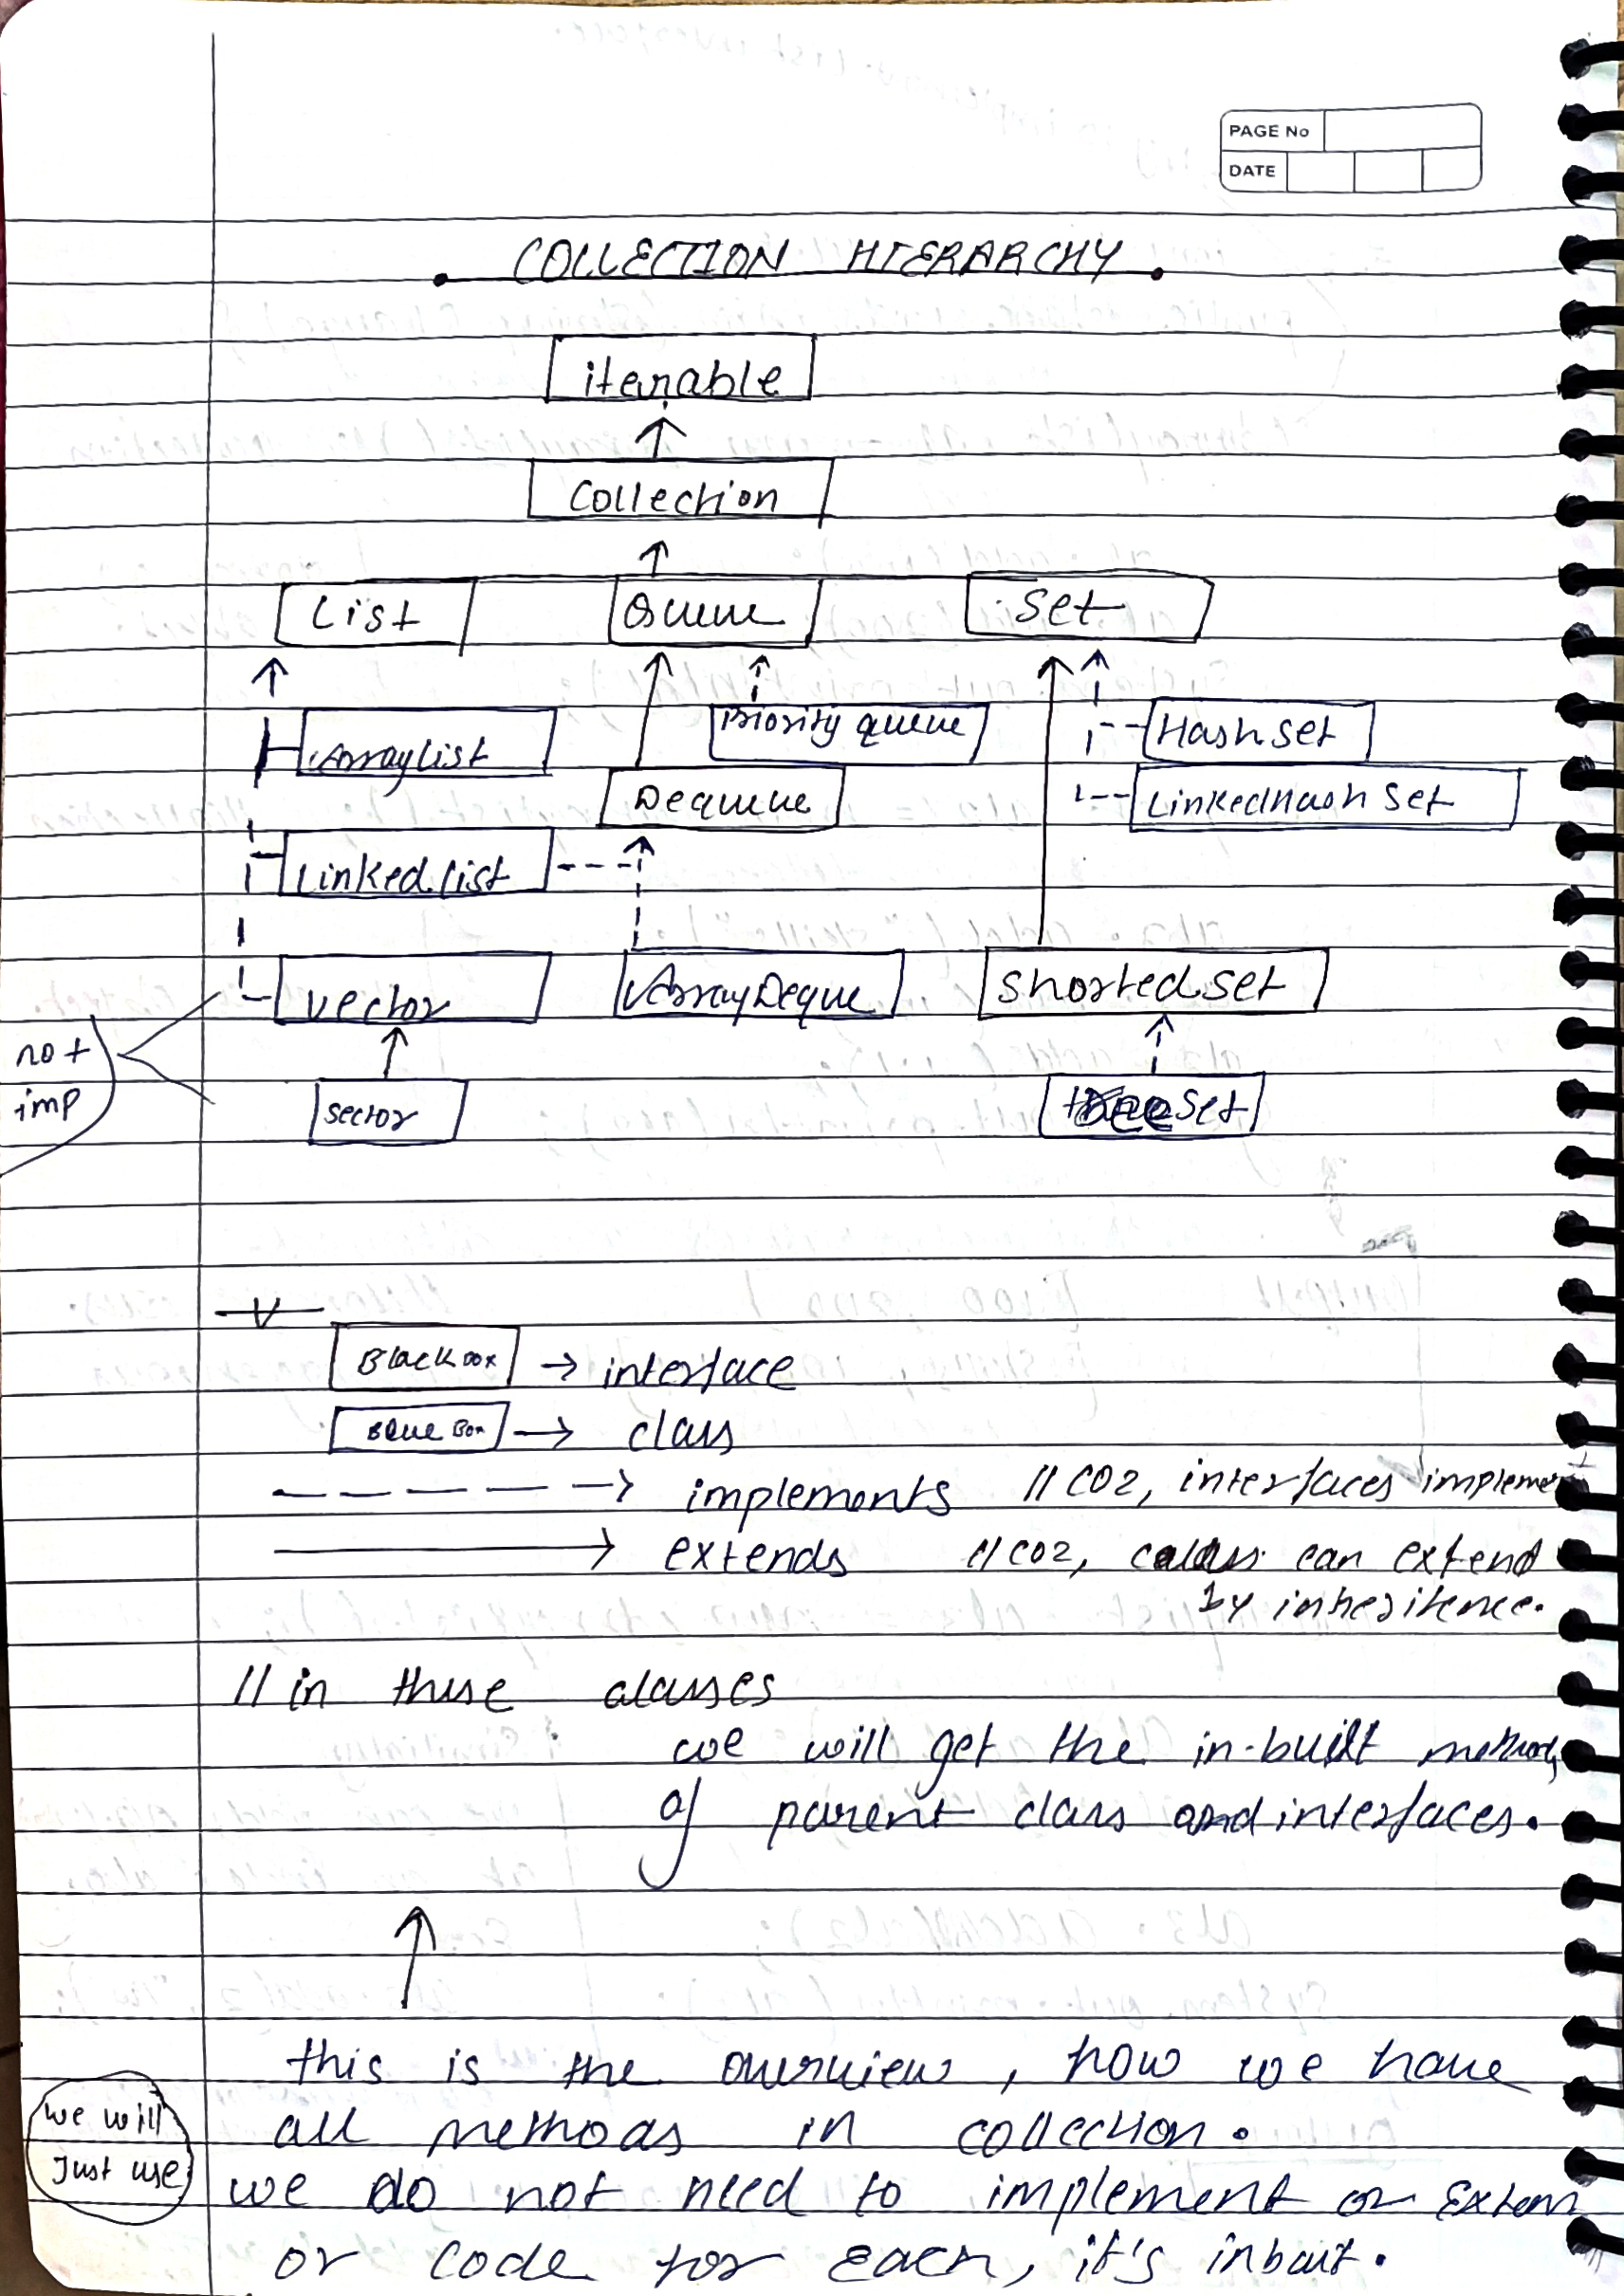 PAGE No
DATE
COLLECTION HIERARCHY
iterable
Collection
List Queue Set
Priority queue HashSet
ArrayList
Dequeue LinkedHash Set
Linked list
Vector ArrayDeque Shortedset
not
imp
sector treeSet
Black box → interface
Blue Box → class
implements // CO2, interfaces implement
extends // CO2, class can extend
by inheritence.
// in these classes
we will get the in-built methods
of parent class and interfaces.
this is the overview, how we have
we will all methods in collection.
Just use we do not need to implement or Extend
or code for Each, it's inbuit.